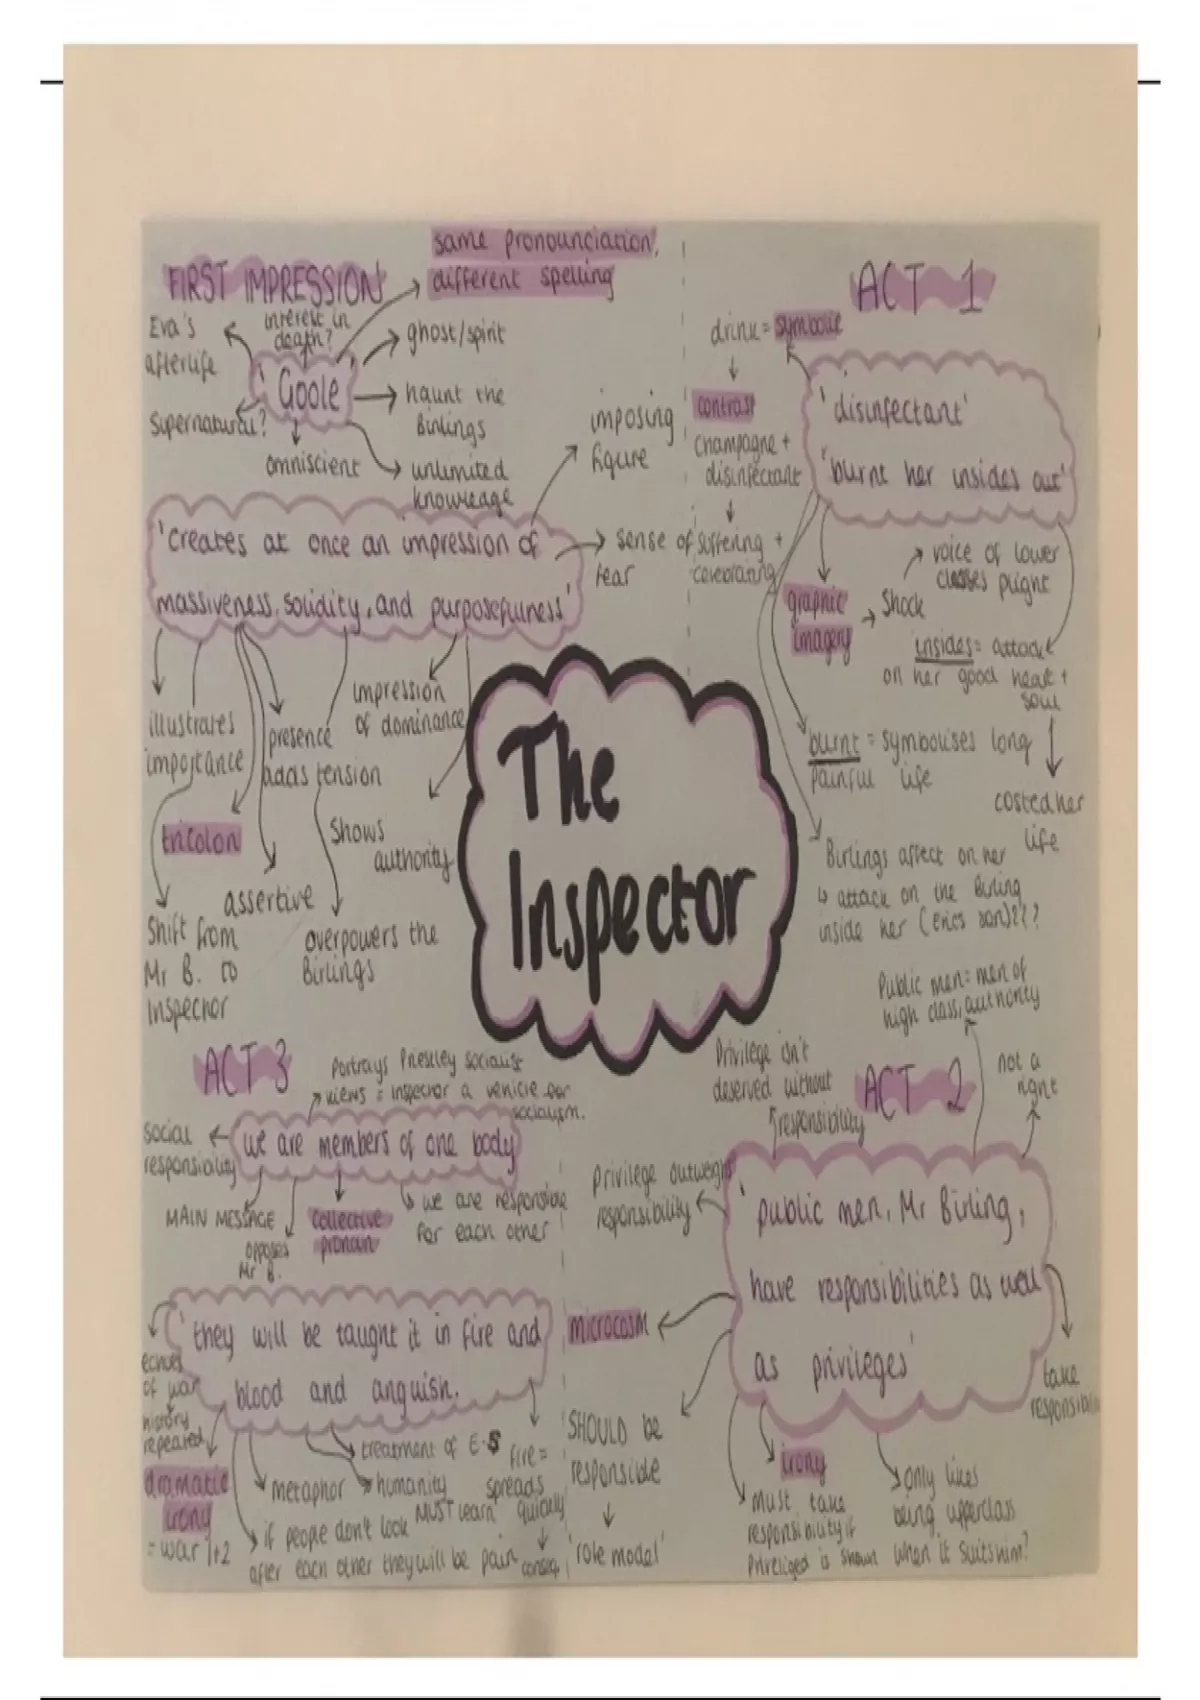 FIRST IMPRESSION
same pronounciation,
different spelling
Eva's
afterlife
interest in
death?
ghost/spirit
'Goole'
haunt the
Birlings
Supernatural?
omniscient
unlimited
knowledge
imposing
figure
'creates at once an impression of
massiveness, solidity, and purposefulness'
sense of
fear
illustrates
importance
presence
adds tension
impression
of dominance
tricolon
shows
authority
assertive
Shift from
Mr B. to
Inspector
overpowers the
Birlings
The
Inspector
ACT 1
drink = symbolic
contrast
champagne +
disinfectant
suffering +
celebrating
'disinfectant'
'burnt her insides out'
graphic
imagery
Shock
voice of lower
classes plight
insides = attack
on her good heart +
soul
burnt = symbolises long
painful life
costed her
life
Birlings affect on her
↳ attack on the Birling
inside her (Erics son)???
ACT 2
Public men = men of
high class, authority
not a
right
Privilege isn't
deserved without
responsibility
Privilege outweighs
responsibility
'public men, Mr Birling,
have responsibilities as well
as privileges'
microcosm
SHOULD be
responsible
'role model'
irony
must take
responsibility if
Priveliged is shown
only likes
being upperclass
when it suits him?
take
ACT 3
Portrays Priestley socialist
views = inspector a vehicle for
socialism.
social
responsiality
we are members of one body
MAIN MESSAGE
opposes
Mr B.
collective
pronoun
we are responsible
for each other
'they will be taught it in fire and
blood and anguish.
echoes
of war
history
repeated
dramatic
irony
= war 1+2
metaphor
treatment of E.S
humanity
MUST learn
fire =
spreads
quickly
if people don't look
after each other they will be pain
conseq.